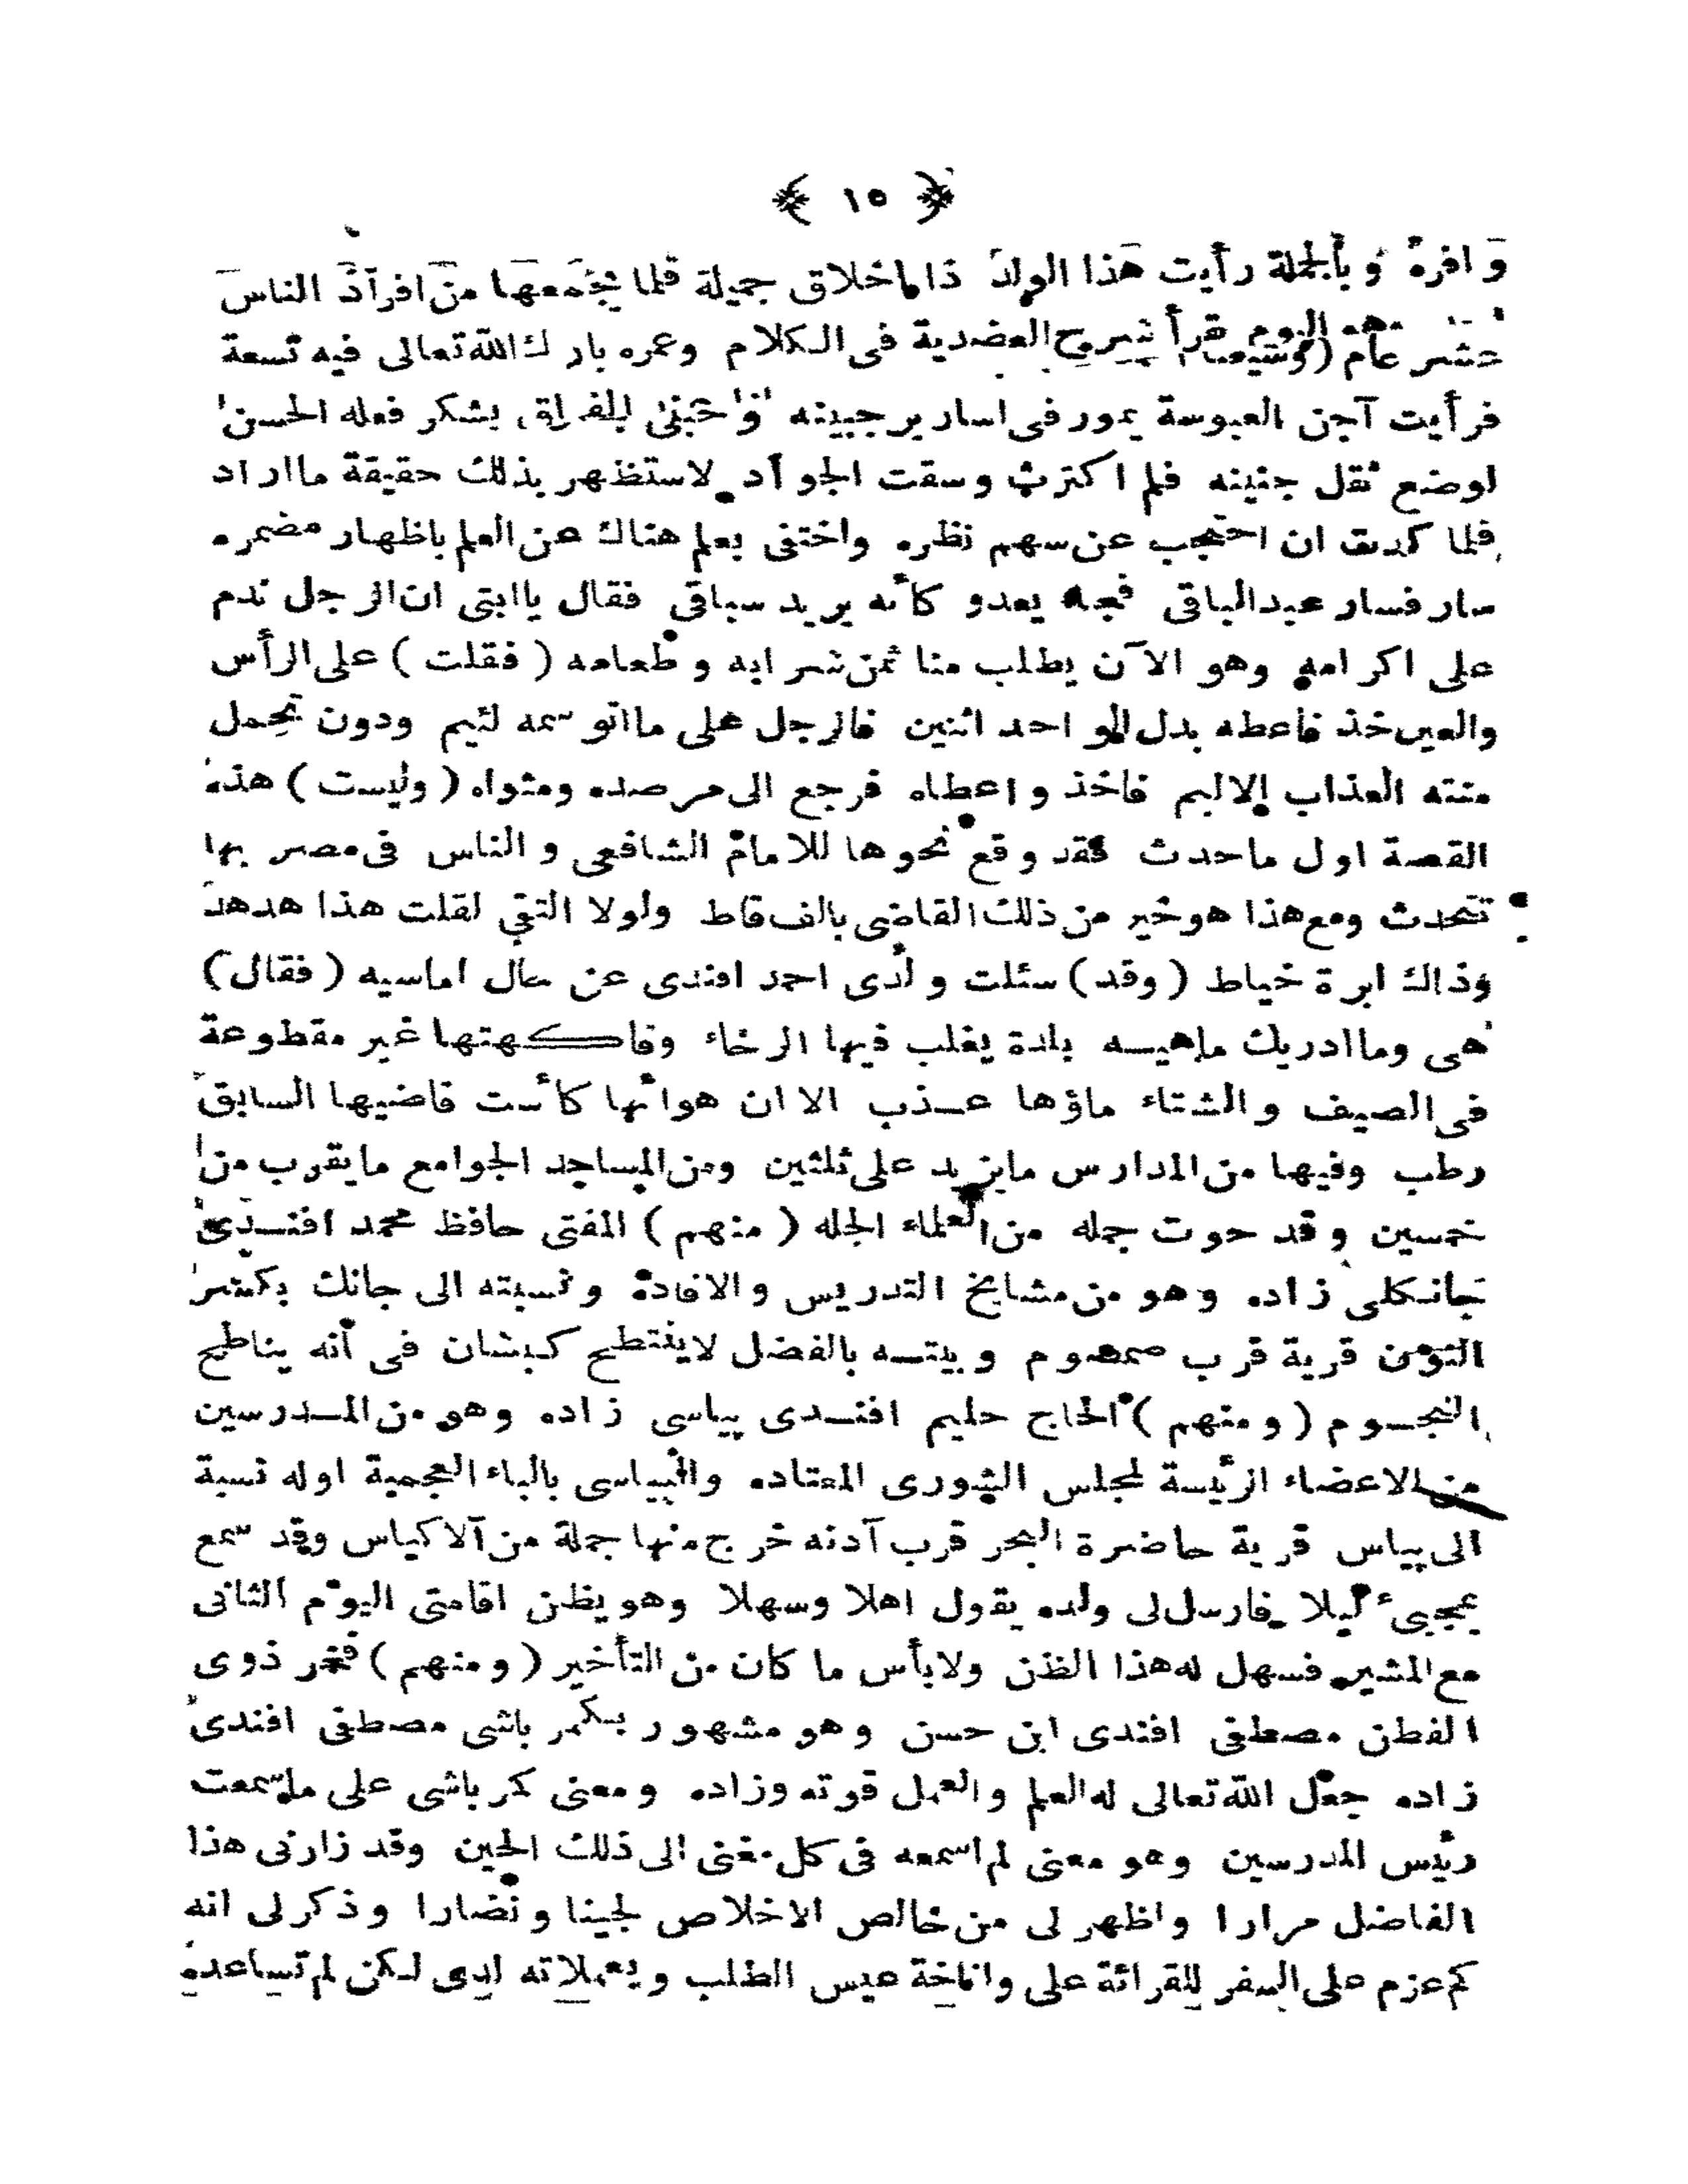 ﴿ ١٥ ﴾
وافرة وبالجملة رأيت هذا الولد ذا اخلاق جميلة قلما يجمعها من افراد الناس
اليوم يقرأ شرح العضدية فى الكلام وعمره بارك الله تعالى فيه تسعة
عشر عام
فرأيت آجن العبوسة يمور فى اسارير جبينه بشكر فعله الحسن
لوضع ثقل جنينه فلم اكترث وسقت الجواد لاستظهر بذلك حقيقة ما اراد
فلما كدت ان احتجب عن سهم نظره واختفى بعلم هناك عن العلم باظهار مضمره
سار فسار عبد الباقى يعدو كأنه يريد سباقى فقال يا ابتى ان الرجل ندم
على اكرامه وهو الآن يطلب منا ثمن شرابه وطعامه ( فقلت ) على الرأس
والعين خذ فاعطه بدل الواحد اثنين فالرجل على ما اتوسمه لئيم ودون تحمل
منته العذاب الاليم فاخذ واعطاه فرجع الى مرصده ومثواه ( وليست ) هذه
القصة اول ما حدث فقد وقع نحوها للامام الشافعى والناس فى مصر بها
تتحدث ومع هذا هو خير من ذلك القاضى بالف قاط ولولا التقى لقلت هذا هدهد
وذاك ابرة خياط ( وقد ) سئلت ولدى احمد افندى عن حال اماسيه ( فقال )
هى وما ادريك ماهيه بلدة يغلب فيها الرخاء وفاكهتها غير مقطوعة
فى الصيف والشتاء ماؤها عذب الا ان هوائها كأست قاضيها السابق
رطب وفيها من المدارس ما يزيد على ثلثين ومن المساجد الجوامع ما يقرب من
خمسين وقد حوت جمله من العلماء الجله ( منهم ) المفتى حافظ محمد افندى
جانكلى زاده وهو من مشايخ التدريس والافادة ونسبته الى جانك بكسر
النون قرية قرب صمصوم وبيته بالفضل لا ينتطح كبشان فى أنه يناطح
النجوم ( ومنهم ) الحاج حليم افندى پياسى زاده وهو من المدرسين
من الاعضاء الرئيسة لمجلس الشورى المعتاده والپياسى بالباء العجمية اوله نسبة
الى پياس قرية حاضرة البحر قرب آدنه خرج منها جملة من الاكياس وقد سمع
بمجيىء ليلا فارسل لى ولده يقول اهلا وسهلا وهو يظن اقامتى اليوم الثانى
مع المشير فسهل له هذا الظن ولا بأس ما كان من التأخير ( ومنهم ) فخر ذوى
الفطن مصطفى افندى ابن حسن وهو مشهور بكمر باشى مصطفى افندى
زاده جعل الله تعالى له العلم والعمل قوته وزاده ومعنى كمر باشى على ما سمعت
رئيس المدرسين وهو معنى لم اسمعه فى كل مغنى الى ذلك الحين وقد زارنى هذا
الفاضل مرارا واظهر لى من خالص الاخلاص لجينا ونضارا وذكر لى انه
كم عزم على السفر للقرائة على واناخة عيس الطلب ويعملاته لدى لكن لم تساعده